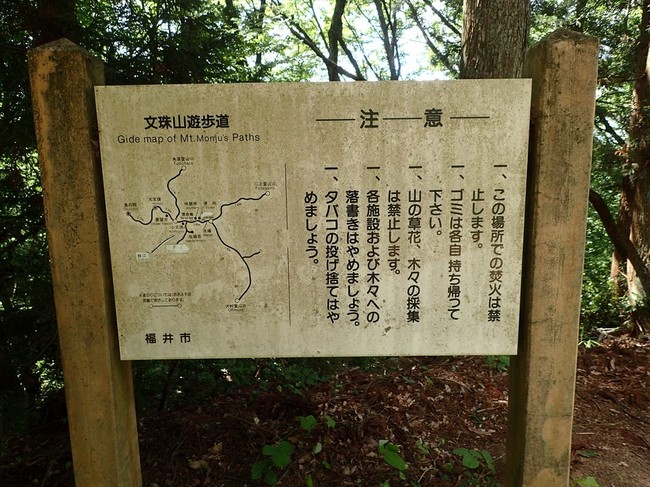 文珠山遊歩道
Gide map of Mt.Monju's Paths
福井市
注意
一、この場所での焚火は禁
止します。
一、ゴミは各自持ち帰って
下さい。
一、山の草花、木々の採集
は禁止します。
一、各施設および木々への
落書きはやめましょう。
一、タバコの投げ捨てはや
めましょう。